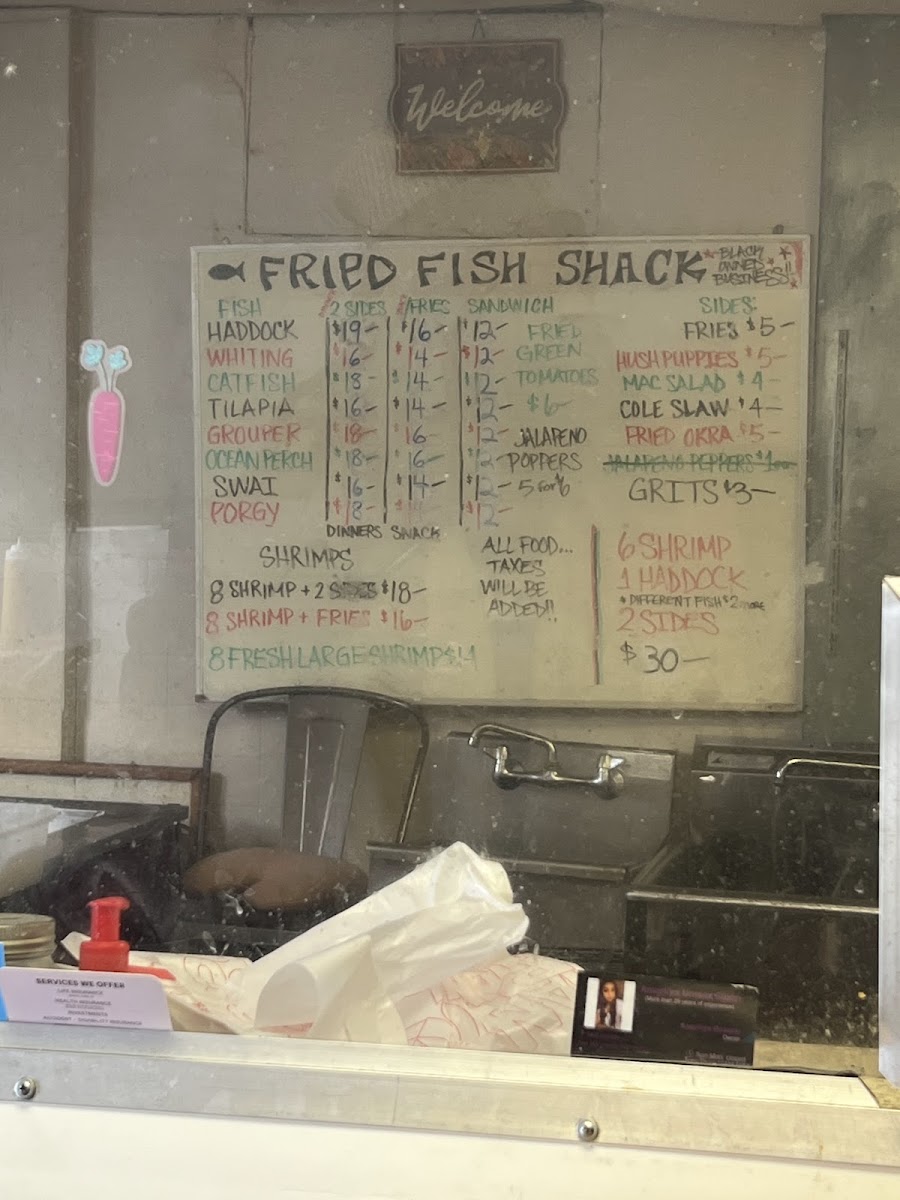 Welcome
FRIED FISH SHACK
BLACK
OWNED
BUSINESS!!
FISH 2 SIDES /FRIES SANDWICH
HADDOCK $19- $16- $12-
WHITING $16- $14- $12-
CATFISH $18- $14- $12-
TILAPIA $16- $14- $12-
GROUPER $18- $16- $12-
OCEAN PERCH $18- $16- $12-
SWAI $16- $14- $12-
PORGY $18- $12-
DINNERS SNACK
FRIED
GREEN
TOMATOES
$6-
JALAPENO
POPPERS
5 for 6
SIDES:
FRIES $5-
HUSH PUPPIES $5-
MAC SALAD $4-
COLE SLAW $4-
FRIED OKRA $5-
JALAPENO PEPPERS
GRITS $3-
SHRIMPS
8 SHRIMP + 2 SIDES $18-
8 SHRIMP + FRIES $16-
8 FRESH LARGE SHRIMP $14
ALL FOOD...
TAXES
WILL BE
ADDED!!
6 SHRIMP
1 HADDOCK
* DIFFERENT FISH $2 more
2 SIDES
$30-
SERVICES WE OFFER
LIFE INSURANCE
HEALTH INSURANCE
INVESTMENTS
ACCIDENT - DISABILITY INSURANCE